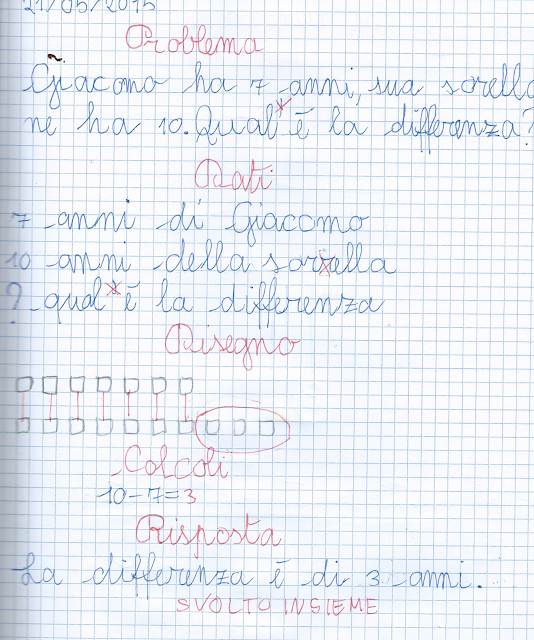 21/05/2015
Problema
Giacomo ha 7 anni, sua sorella
ne ha 10. Qual' è la differenza?
Dati
7 anni di Giacomo
10 anni della sorella
? qual' è la differenza
Disegno
Calcoli
10-7=3
Risposta
La differenza è di 3 anni.
SVOLTO INSIEME